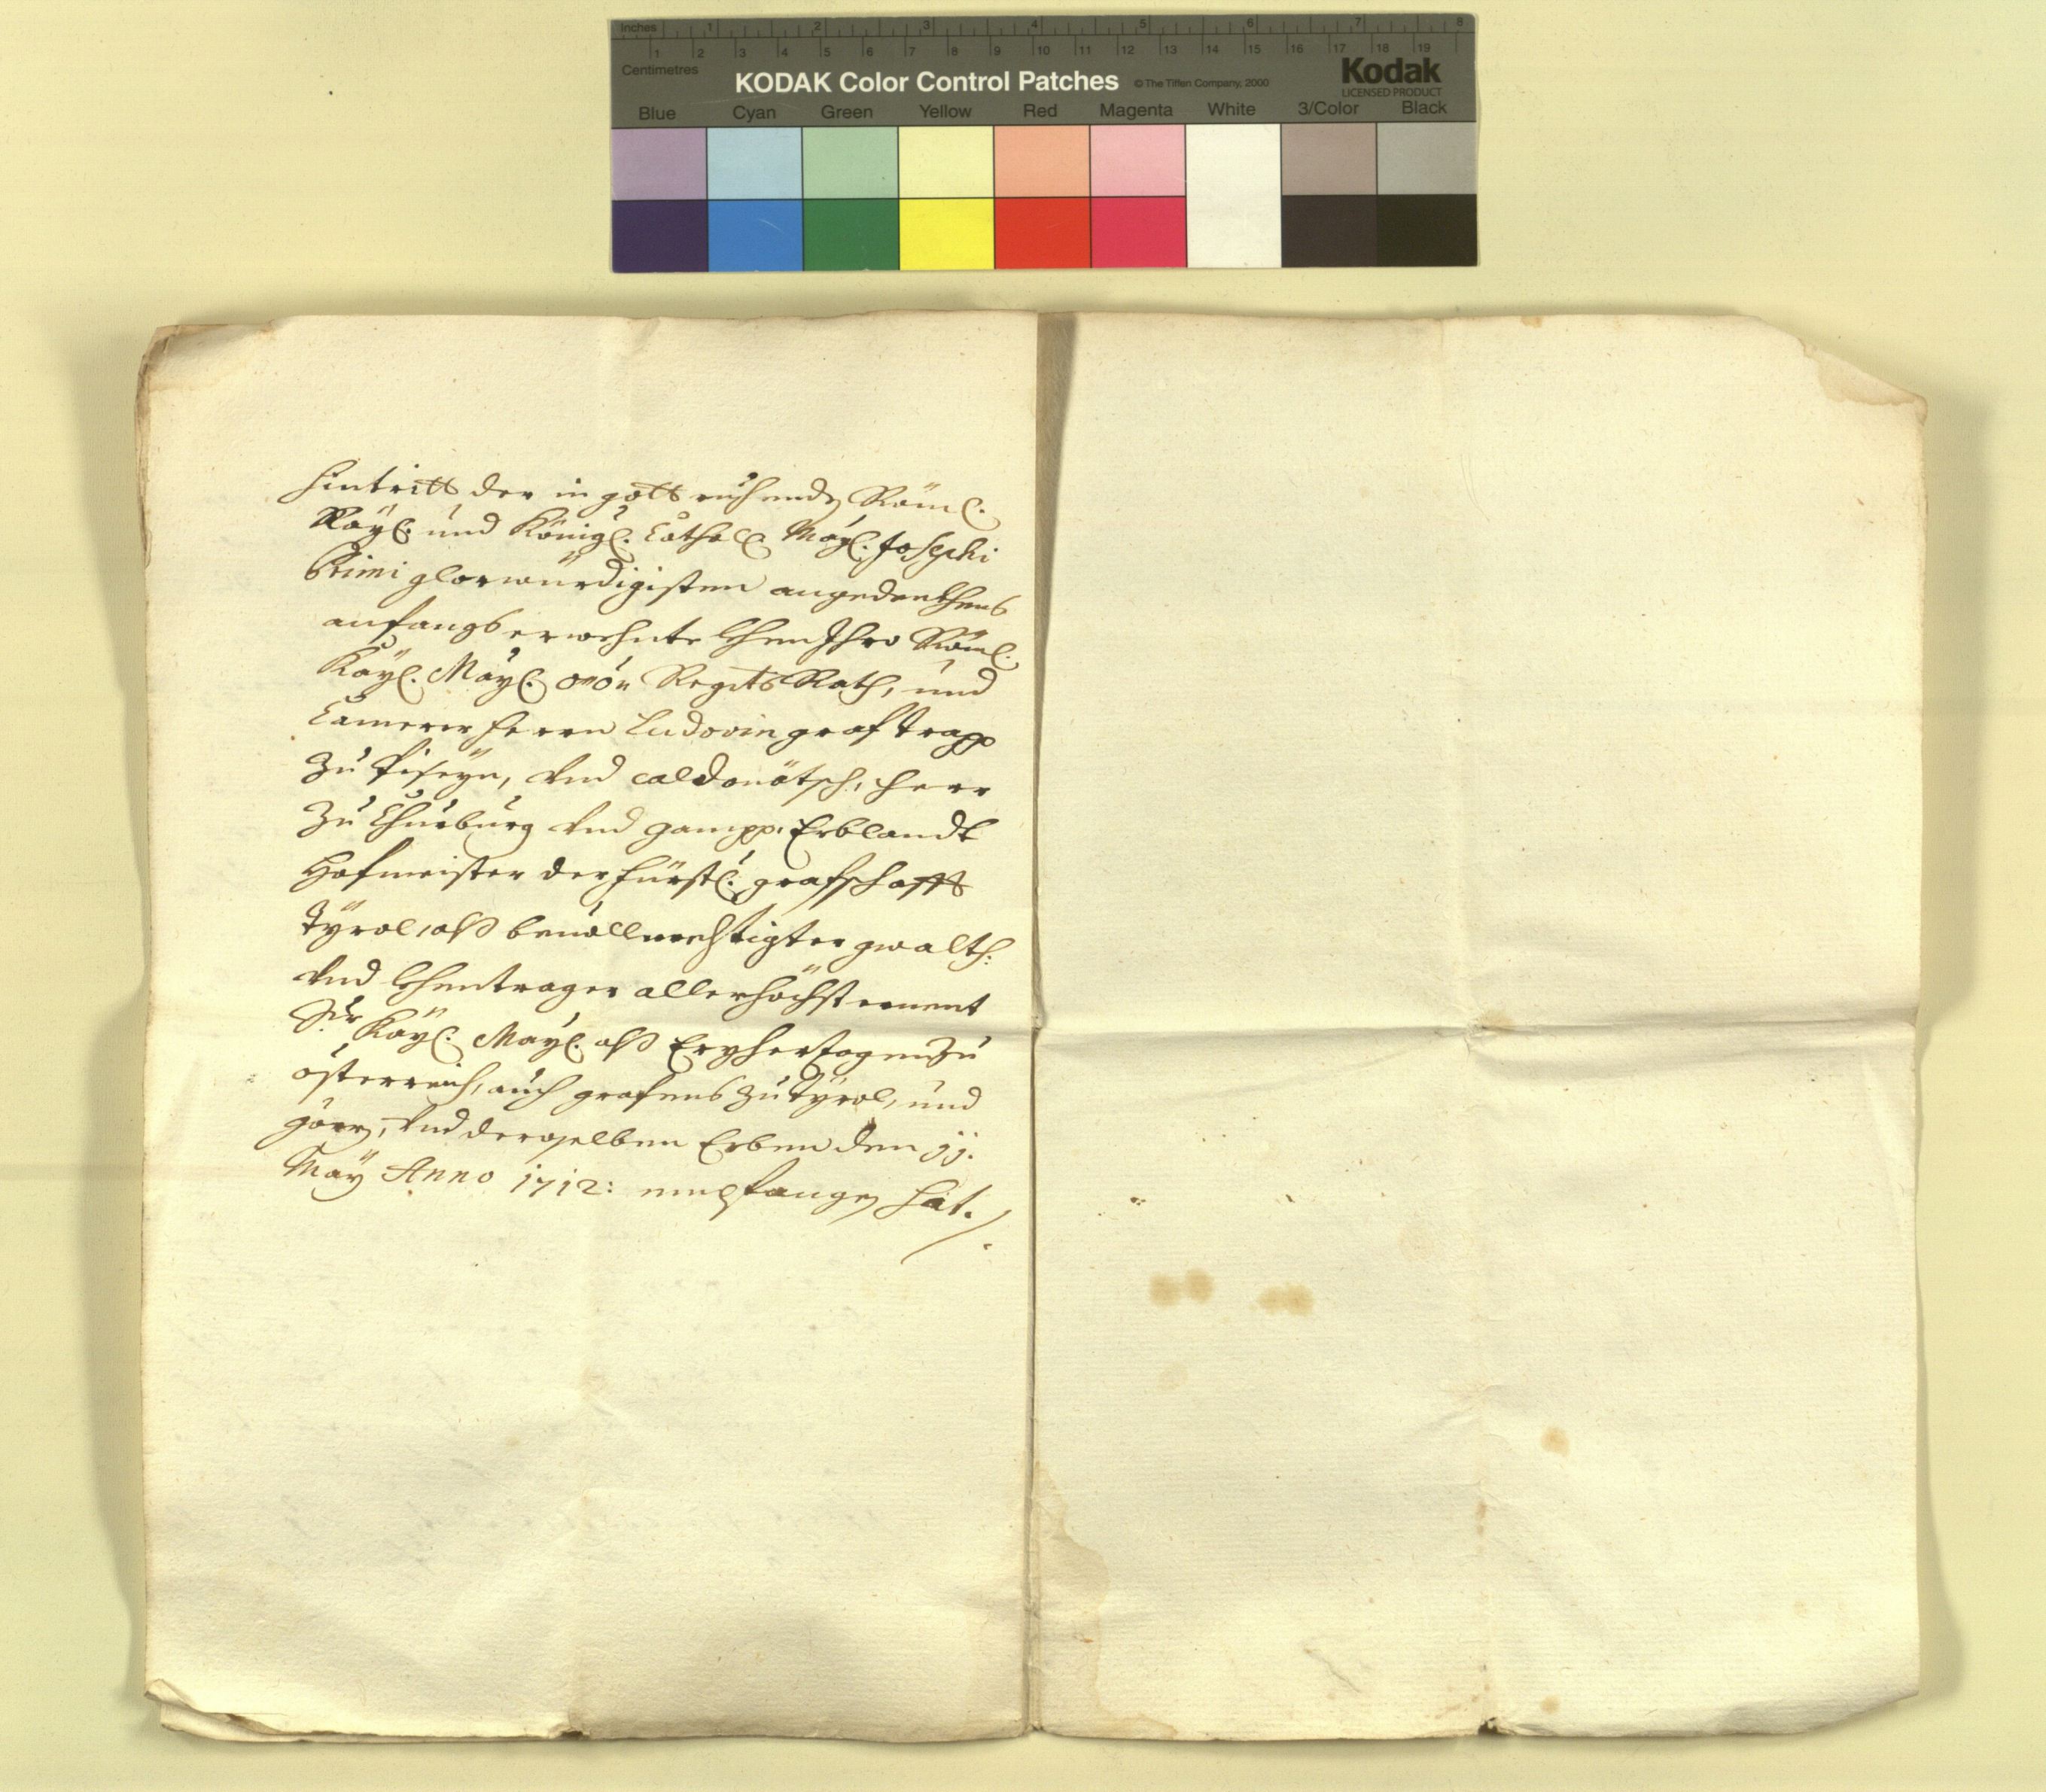 Inches 1 2 3 4 5 6 7 8
1 2 3 4 5 6 7 8 9 10 11 12 13 14 15 16 17 18 19
Centimetres
KODAK Color Control Patches © The Tiffen Company, 2000 Kodak
LICENSED PRODUCT
Blue Cyan Green Yellow Red Magenta White 3/Color Black
hintritts der in gott ruhenden Röml.
Kayl. und Königl. Cathol. Mayl. Josephi
Primi glorwürdigisten angedenkhens
anfangs erwehnte Lehen Ihro Röml.
Kayl. Mayl. Regits Rath, und
Camerer Herrn Ludovin graf trapp
zu Piseyn, vnd caldonätsch, herr
zu Churburg vnd gampp, Erblandt
Hofmeister der fürstl. grafschafft
Tyrol, alß bevollmechtigter gwalth:
vnd Lehentrager allerhöchsternent
Sr. Kayl. Mayl. alß Erzhertzogen zu
österreich, auch grafens zu Tyrol, und
görz, vnd deroselben Erben den jj.
May Anno 1712: empfangen hat./.